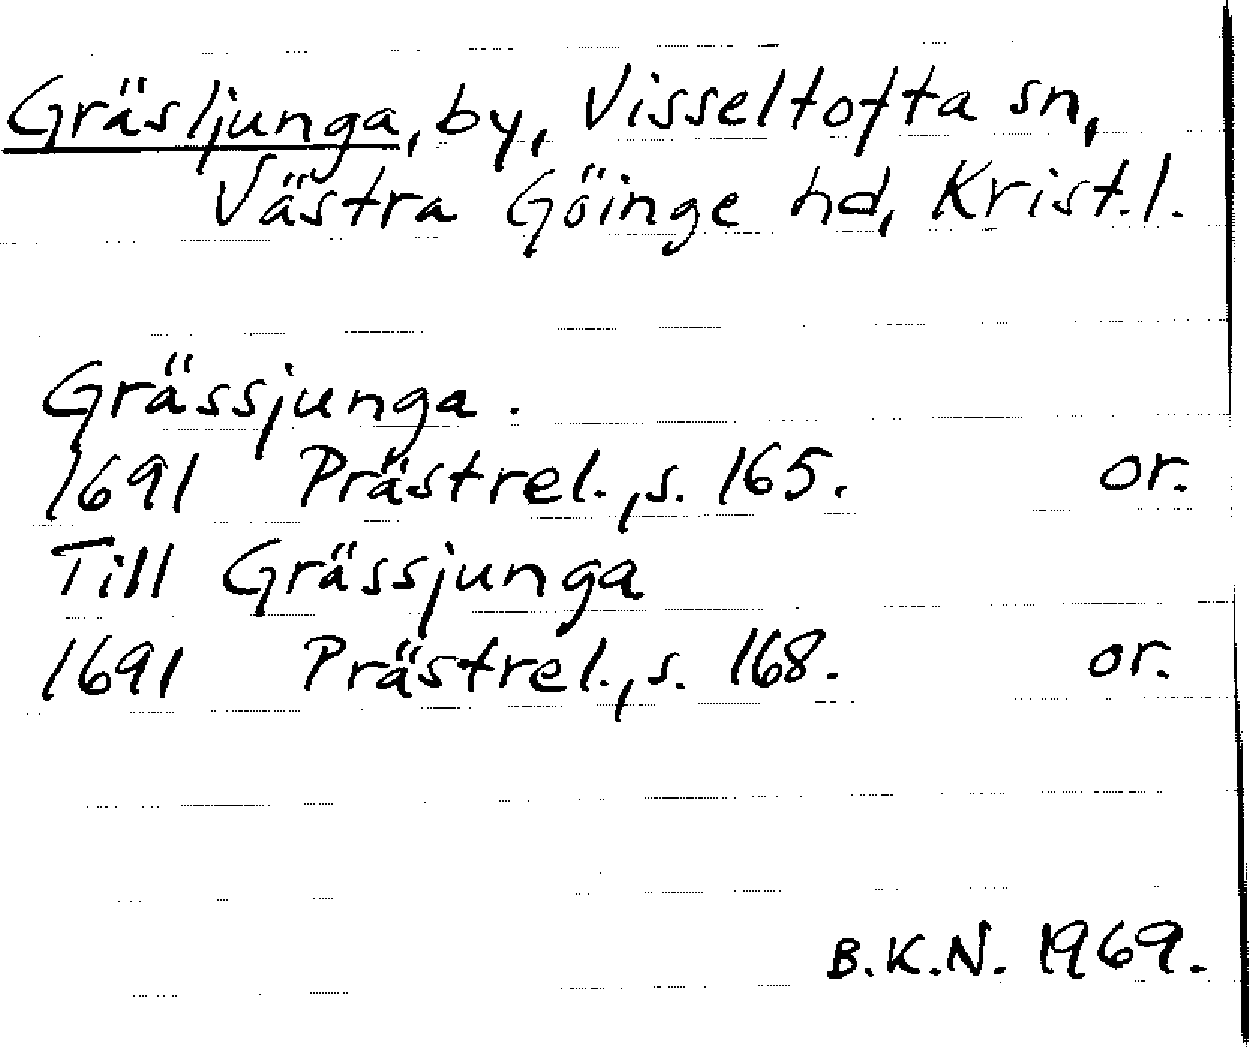 Gräsljunga, by, Visseltofta sn,
Västra Göinge hd, Krist.l.
Grässjunga.
1691 Prästrel., s. 165. or.
Till Grässjunga
1691 Prästrel., s. 168. or.
B.K.N. 1969.